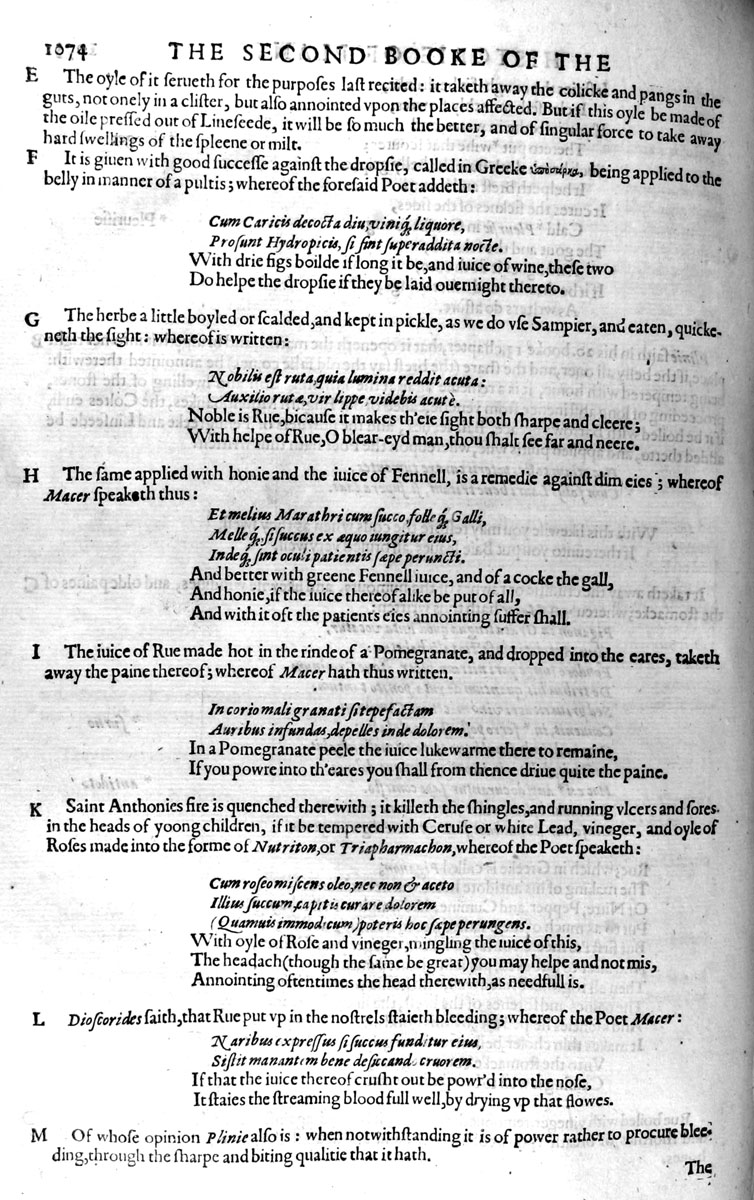 1074 THE SECOND BOOKE OF THE
E The oyle of it ſerueth for the purpoſes laſt recited: it taketh away the colicke and pangs in the
guts, not onely in a cliſter, but alſo annointed vpon the places affected. But if this oyle be made of
the oile preſſed out of Lineſeede, it will be ſo much the better, and of ſingular force to take away
hard ſwellings of the ſpleene or milt.
F It is giuen with good ſucceſſe againſt the dropſie, called in Greeke being applied to the
belly in manner of a pultis; whereof the foreſaid Poet addeth:
Cum Caricis decocta diu, viniq́, liquore,
Proſunt Hydropicis, ſi ſint ſuperaddita nocte.
With drie figs boilde if long it be, and iuice of wine, theſe two
Do helpe the dropſie if they be laid ouernight thereto.
G The herbe a little boyled or ſcalded, and kept in pickle, as we do vſe Sampier, and eaten, quicke-
neth the ſight: whereof is written:
Nobilis eſt ruta, quia lumina reddit acuta:
Auxilio rutæ, vir lippe, videbis acutè.
Noble is Rue, bicauſe it makes th'eie ſight both ſharpe and cleere;
With helpe of Rue, O blear-eyd man, thou ſhalt ſee far and neere.
H The ſame applied with honie and the iuice of Fennell, is a remedie againſt dim eies; whereof
Macer ſpeaketh thus:
Et melius Marathri cum ſucco, felle q́, Galli,
Melle q́, ſi ſuccus ex æquo iungitur eius,
Inde q́, ſint oculi patientis ſæpe peruncti.
And better with greene Fennell iuice, and of a cocke the gall,
And honie, if the iuice thereof alike be put of all,
And with it oft the patients eies annointing ſuffer ſhall.
I The iuice of Rue made hot in the rinde of a Pomegranate, and dropped into the eares, taketh
away the paine thereof; whereof Macer hath thus written.
In corio mali granati ſi tepefactam
Auribus infundas, depelles inde dolorem.
In a Pomegranate peele the iuice lukewarme there to remaine,
If you powre into th'eares you ſhall from thence driue quite the paine.
K Saint Anthonies fire is quenched therewith; it killeth the ſhingles, and running vlcers and ſores
in the heads of yoong children, if it be tempered with Ceruſe or white Lead, vineger, and oyle of
Roſes made into the forme of Nutriton, or Triapharmachon, whereof the Poet ſpeaketh:
Cum roſeo miſcens oleo, nec non & aceto
Illius ſuccum, capitis curare dolorem
(Quamuis immodicum) poteris hoc ſæpe perungens.
With oyle of Roſe and vineger, mingling the iuice of this,
The headach (though the ſame be great) you may helpe and not mis,
Annointing oftentimes the head therewith, as needfull is.
L Dioſcorides ſaith, that Rue put vp in the noſtrels ſtaieth bleeding; whereof the Poet Macer:
Naribus expreſſus ſi ſuccus funditur eius,
Siſtit manantem bene deſiccando cruorem.
If that the iuice thereof cruſht out be powr'd into the noſe,
It ſtaies the ſtreaming blood full well, by drying vp that flowes.
M Of whoſe opinion Plinie alſo is: when notwithſtanding it is of power rather to procure blee-
ding, through the ſharpe and biting qualitie that it hath.
The